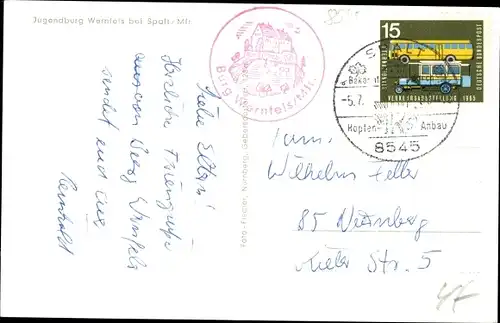 Jugendburg Wernfels bei Spalt/Mfr.
Liebe Eltern!
Herzliche Feriengrüße
aus von Burg Wernfels
sendet euch
Reinhold
Burg Wernfels/Mfr.
Foto-Fischer, Nürnberg,
15
DEUTSCHE BUNDESPOST
VERKEHRSAUSSTELLUNG 1965
SPALT
-5.7.
Hopfen- Anbau
8545
Fam.
Wilhelm Feller
85 Nürnberg
Kieler Str. 5